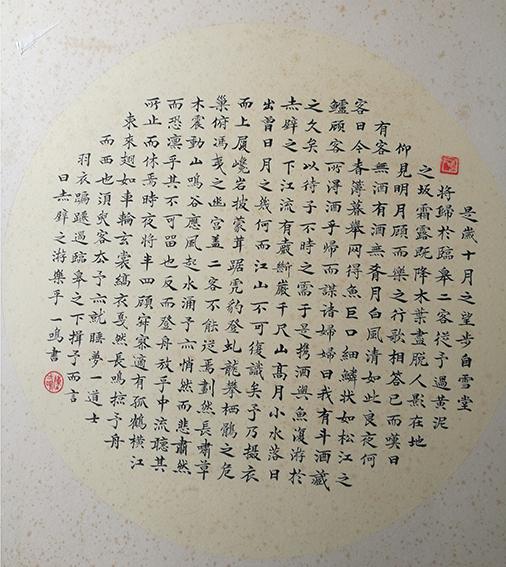 是歲十月之望步自雪堂
將歸於臨皋二客從予過黃泥
之坂霜露既降木葉盡脫人影在地
仰見明月顧而樂之行歌相答已而嘆曰
有客無酒有酒無肴月白風清如此良夜何
客曰今者薄暮舉网得魚巨口細鱗狀如松江之
鱸顧安所得酒乎歸而謀諸婦婦曰我有斗酒藏
之久矣以待子不時之需于是携酒與魚復游於
赤壁之下江流有聲斷岸千尺山高月小水落石
出曾日月之幾何而江山不可復識矣予乃攝衣
而上履巉岩披蒙茸踞虎豹登虬龍攀栖鶻之危
巢俯馮夷之幽宮蓋二客不能從焉劃然長嘯草
木震動山鳴谷應風起水涌予亦悄然而悲肅然
而恐凛乎其不可留也反而登舟放乎中流聽其
所止而休焉時夜將半四顧寂寥適有孤鶴橫江
東來翅如車輪玄裳縞衣戛然長鳴掠予舟
而西也須臾客去予亦就睡夢一道士
羽衣蹁躚過臨皋之下揖予而言
曰赤壁之游樂乎一鳴書